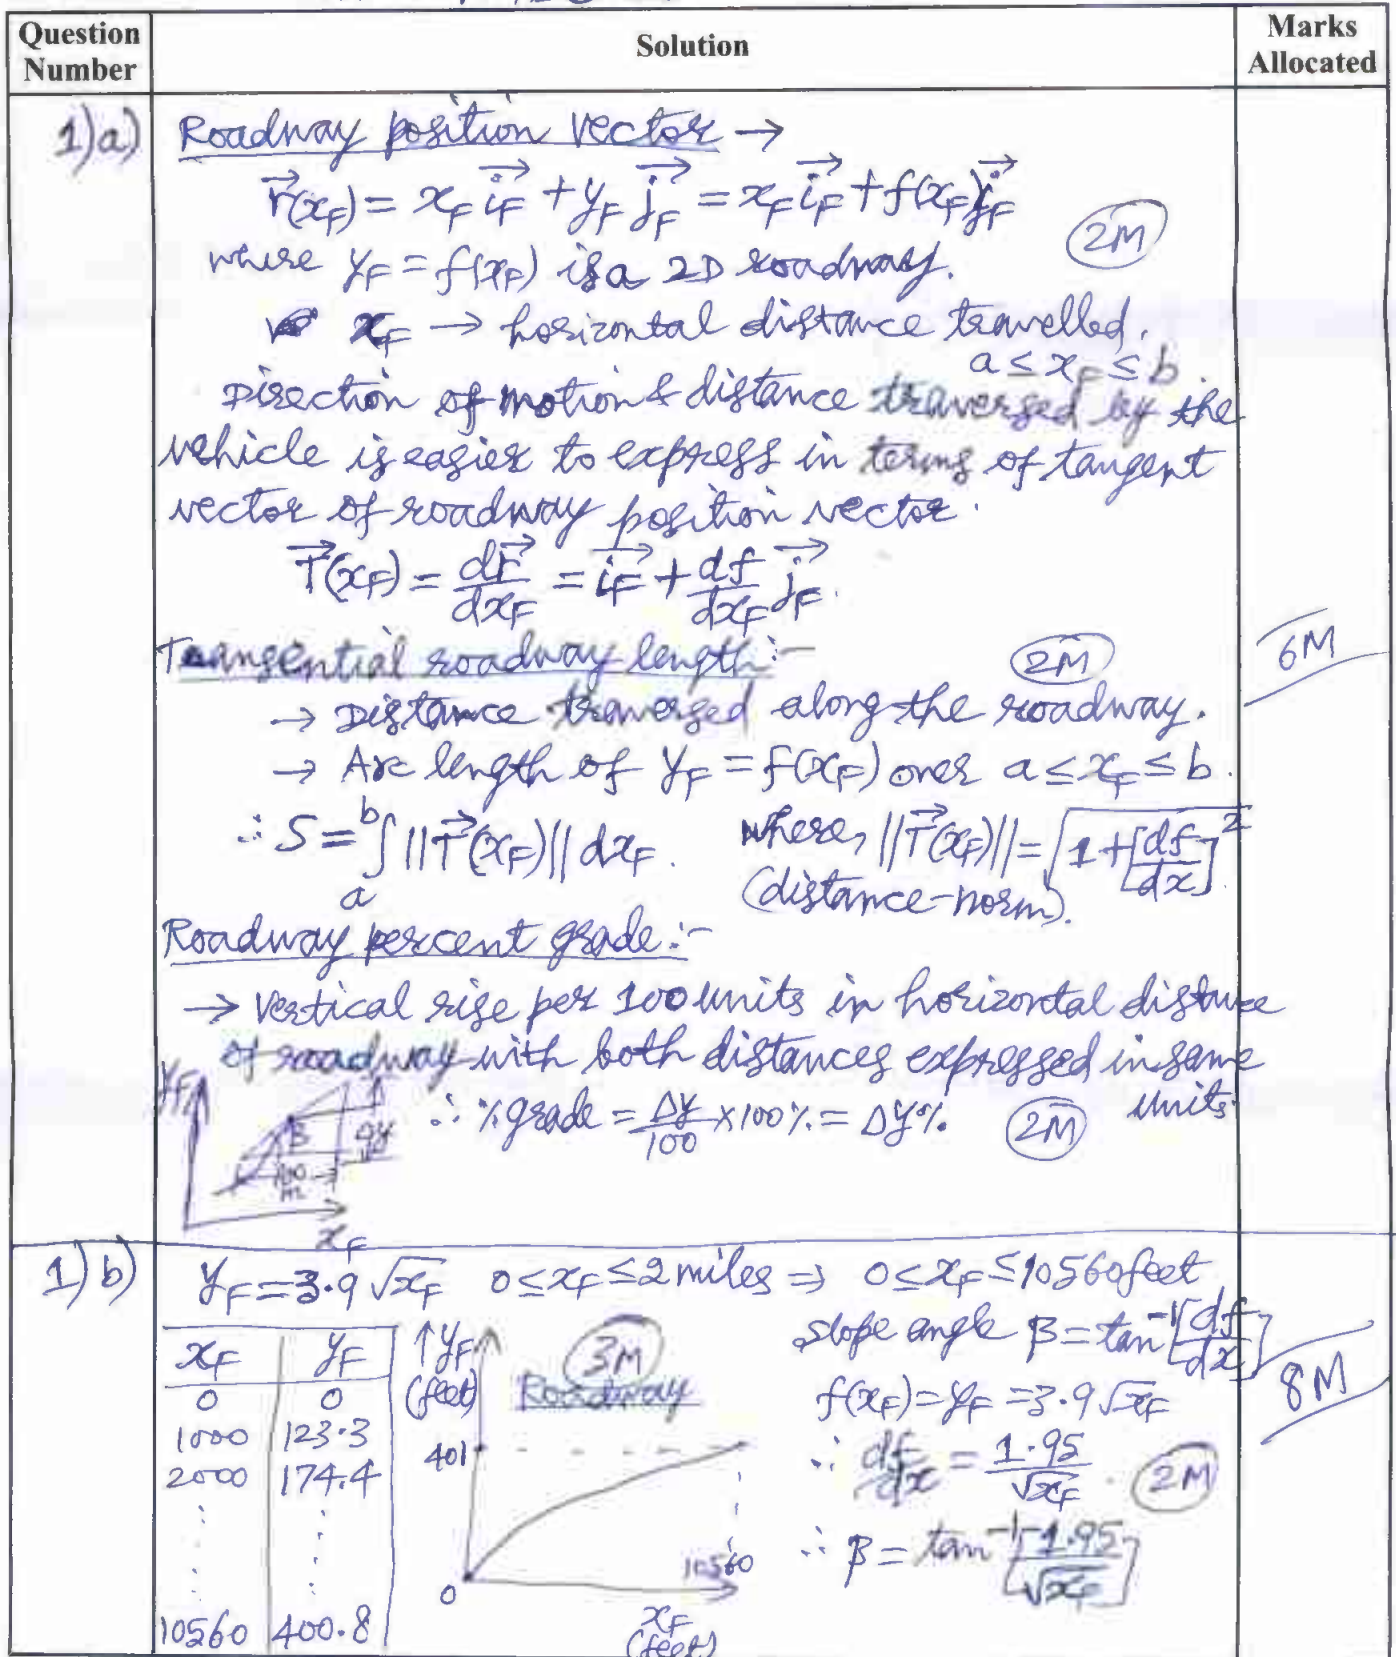 Question Number
Solution
Marks Allocated
1)a)
Roadway position vector →
r⃗(x_F) = x_F i⃗_F + y_F j⃗_F = x_F i⃗_F + f(x_F) j⃗_F
where y_F = f(x_F) is a 2D roadway.
2M
x_F → horizontal distance travelled.
a ≤ x_F ≤ b.
Direction of motion & distance traversed by the
vehicle is easier to express in terms of tangent
vector of roadway position vector.
T⃗(x_F) = dr⃗/dx_F = i⃗_F + df/dx_F j⃗_F.
Tangential roadway length:-
2M
6M
→ Distance traversed along the roadway.
→ Arc length of y_F = f(x_F) over a ≤ x_F ≤ b.
∴ S = ∫_a^b ||T⃗(x_F)|| dx_F. where, ||T⃗(x_F)|| = √(1+[df/dx]²)
(distance-norm).
Roadway percent grade:-
→ Vertical rise per 100 units in horizontal distance
of roadway with both distances expressed in same
units.
∴ % grade = Δy/100 × 100% = Δy%.
2M
y_F
β
Δy
100
m
x_F
1)b)
y_F = 3.9 √x_F 0 ≤ x_F ≤ 2 miles ⇒ 0 ≤ x_F ≤ 10560 feet
slope angle β = tan⁻¹[df/dx]
8M
x_F y_F
0 0
1000 123.3
2000 174.4
⋮ ⋮
10560 400.8
↑y_F
(feet)
3M
Roadway
401
0
10560
x_F
(feet)
f(x_F) = y_F = 3.9 √x_F
∴ df/dx = 1.95/√x_F.
2M
∴ β = tan⁻¹[1.95/√x_F]